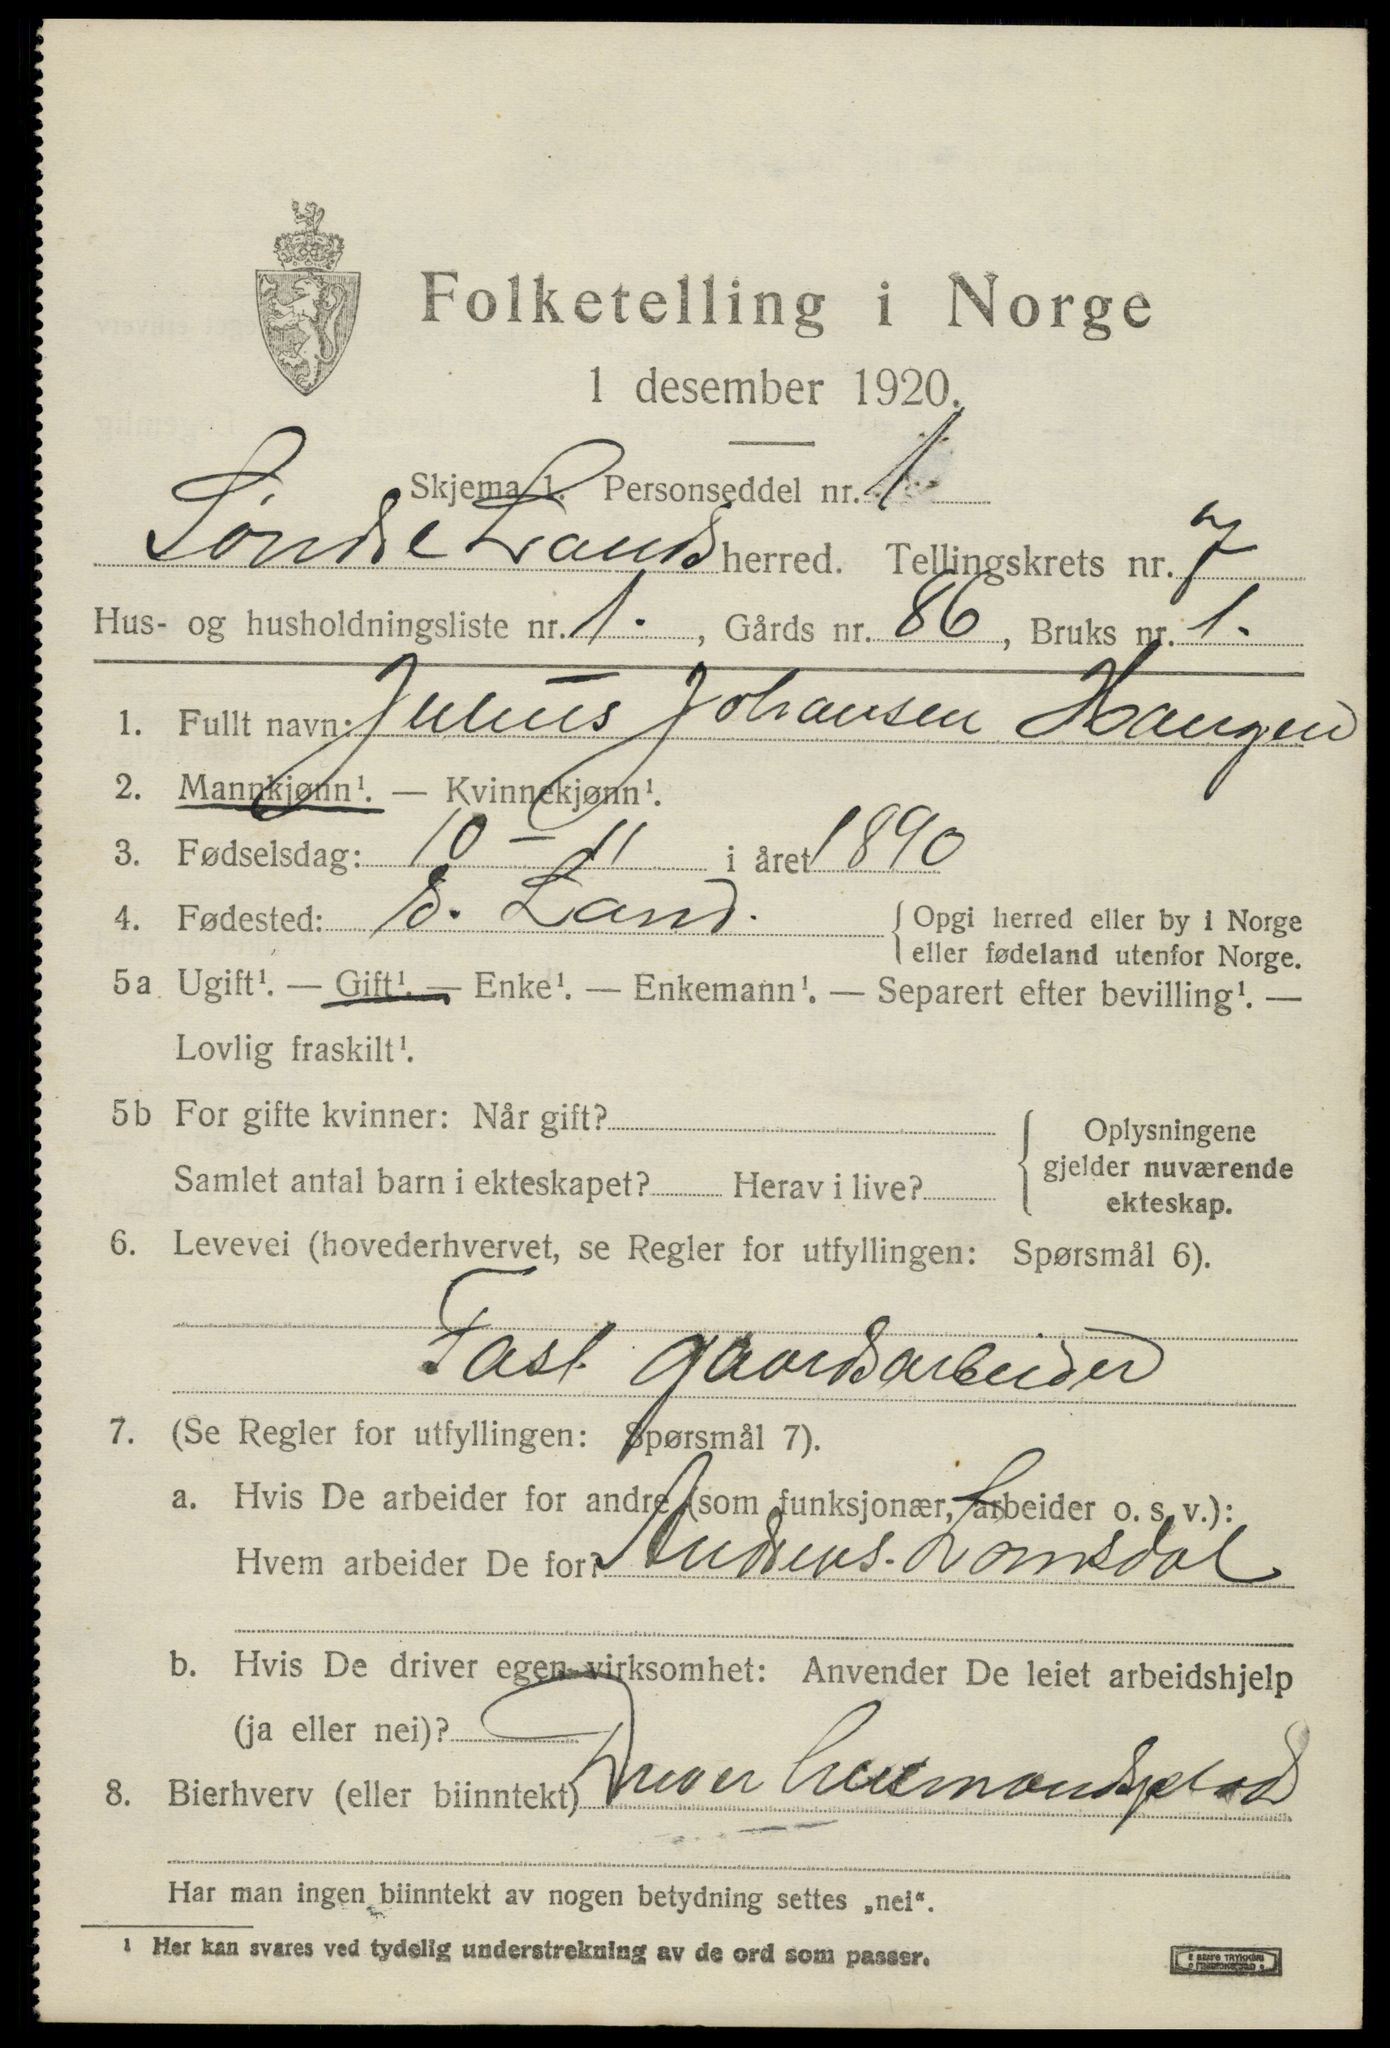 Folketelling i Norge
1 desember 1920.
Skjema 1. Personseddel nr. 1
Søndre Lands herred. Tellingskrets nr. 7
Hus- og husholdningsliste nr. 1. , Gårds nr. 86 , Bruks nr. 1.
1. Fullt navn: Julius Johansen Haugen
2. Mannkjønn¹. — Kvinnekjønn¹.
3. Fødselsdag: 10 - 11 i året 1890
4. Fødested: S. Land. { Opgi herred eller by i Norge
eller fødeland utenfor Norge.
5a Ugift¹. — Gift¹. — Enke¹. — Enkemann¹. — Separert efter bevilling¹. —
Lovlig fraskilt¹.
5b For gifte kvinner: Når gift?
Samlet antal barn i ekteskapet? Herav i live?
{ Oplysningene
gjelder nuværende
ekteskap.
6. Levevei (hovederhvervet, se Regler for utfyllingen: Spørsmål 6).
Fast gaardsarbeider
7. (Se Regler for utfyllingen: Spørsmål 7).
a. Hvis De arbeider for andre (som funksjonær, arbeider o. s. v.):
Hvem arbeider De for? Andreas Lomsdal
b. Hvis De driver egen virksomhet: Anvender De leiet arbeidshjelp
(ja eller nei)?
8. Bierhverv (eller biinntekt) Driver husmandsplads
Har man ingen biinntekt av nogen betydning settes „nei“.
¹ Her kan svares ved tydelig understrekning av de ord som passer.